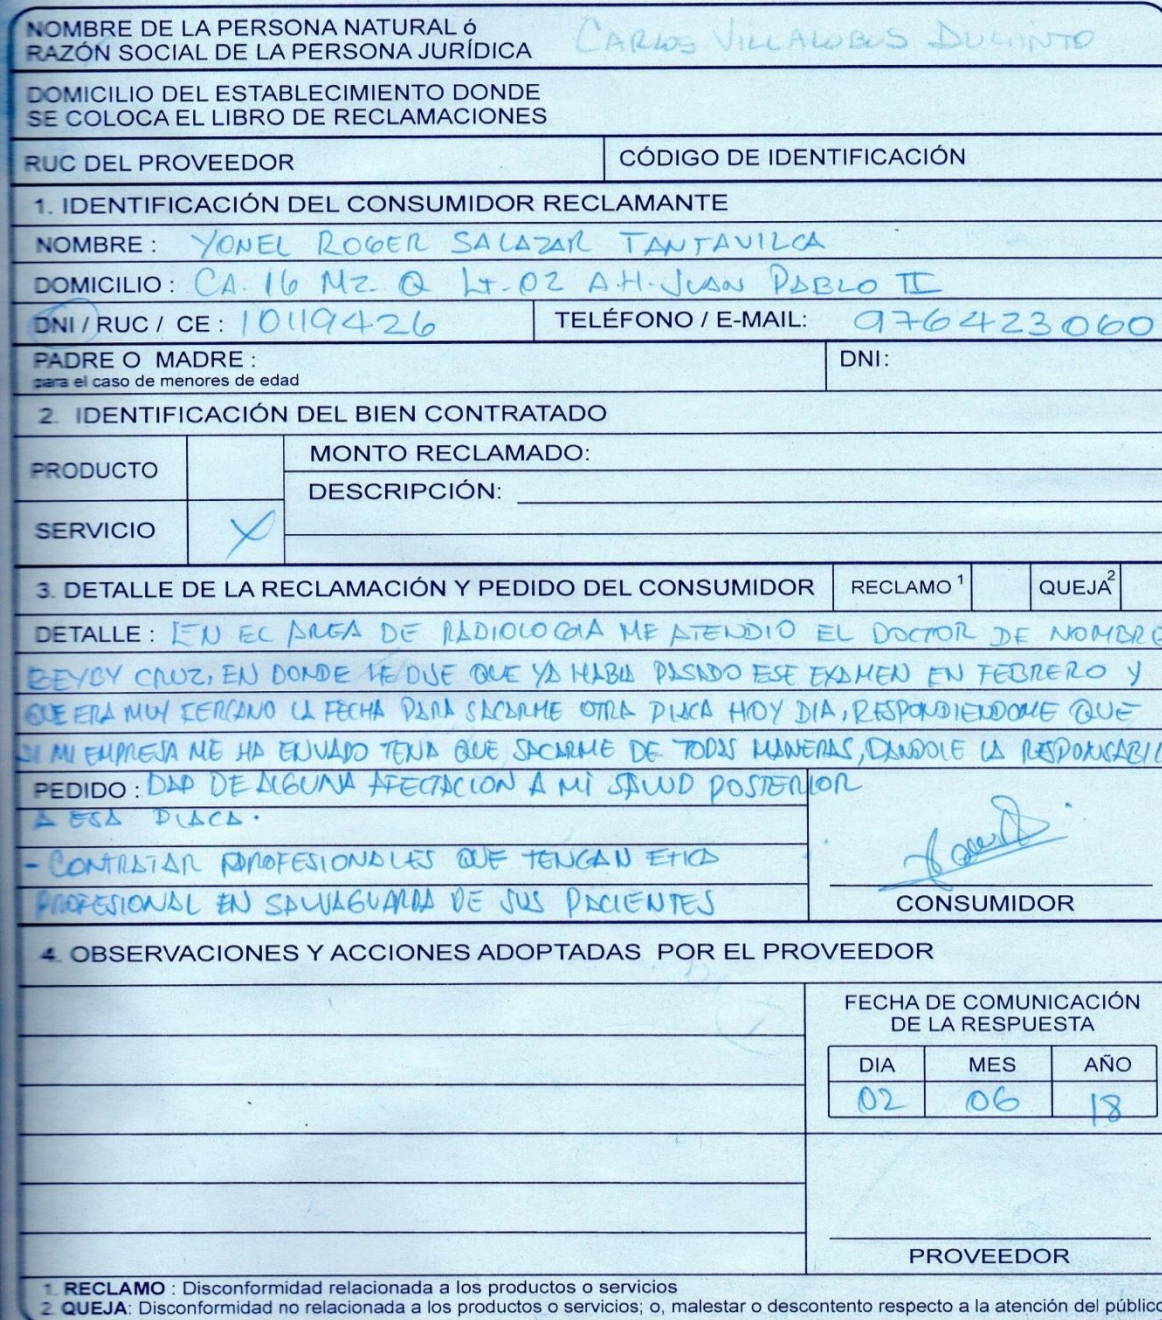 NOMBRE DE LA PERSONA NATURAL ó
RAZÓN SOCIAL DE LA PERSONA JURÍDICA
CARLOS VILLALOBOS DULANTO
DOMICILIO DEL ESTABLECIMIENTO DONDE
SE COLOCA EL LIBRO DE RECLAMACIONES
RUC DEL PROVEEDOR CÓDIGO DE IDENTIFICACIÓN
1. IDENTIFICACIÓN DEL CONSUMIDOR RECLAMANTE
NOMBRE : YONEL ROGER SALAZAR TANTAVILCA
DOMICILIO : CA. 16 MZ. Q LT.02 A.H. JUAN PABLO II
DNI / RUC / CE : 10119426 TELÉFONO / E-MAIL: 976423060
PADRE O MADRE : DNI:
para el caso de menores de edad
2. IDENTIFICACIÓN DEL BIEN CONTRATADO
PRODUCTO MONTO RECLAMADO:
DESCRIPCIÓN:
SERVICIO X
3. DETALLE DE LA RECLAMACIÓN Y PEDIDO DEL CONSUMIDOR RECLAMO 1 QUEJA 2
DETALLE : EN EL AREA DE RADIOLOGIA ME ATENDIO EL DOCTOR DE NOMBRE
BEYBY CRUZ, EN DONDE LE DIJE QUE YA HABIA PASADO ESE EXAMEN EN FEBRERO Y
QUE ERA MUY CERCANO LA FECHA PARA SACARME OTRA PLACA HOY DIA, RESPONDIENDOME QUE
SI MI EMPRESA ME HA ENVIADO TENIA QUE SACARME DE TODAS MANERAS, DANDOLE LA RESPONSABILI
PEDIDO : DAD DE ALGUNA AFECTACION A MI SALUD POSTERIOR
A ESA PLACA.
- CONTRATAR PROFESIONALES QUE TENGAN ETICA
PROFESIONAL EN SALVAGUARDA DE SUS PACIENTES
CONSUMIDOR
4. OBSERVACIONES Y ACCIONES ADOPTADAS POR EL PROVEEDOR
FECHA DE COMUNICACIÓN
DE LA RESPUESTA
DIA MES AÑO
02 06 18
PROVEEDOR
1. RECLAMO : Disconformidad relacionada a los productos o servicios
2. QUEJA: Disconformidad no relacionada a los productos o servicios; o, malestar o descontento respecto a la atención del público